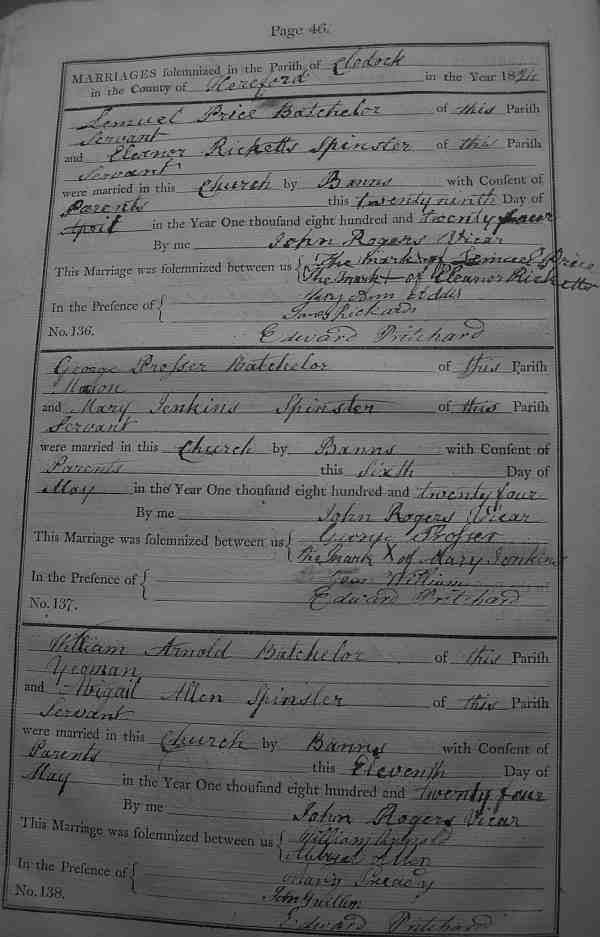 Page 46.
MARRIAGES solemnized in the Parish of Clodock
in the County of Hereford in the Year 1824
Lemuel Price Batchelor of this Parish
Servant
and Eleanor Ricketts Spinster of this Parish
Servant
were married in this Church by Banns with Consent of
Parents this twenty ninth Day of
April in the Year One thousand eight hundred and twenty four
By me John Rogers Vicar
This Marriage was solemnized between us { The mark of Lemuel Price
The mark + of Eleanor Ricketts
In the Presence of {
Rickards
No. 136. Edward Pritchard
George Prosser Batchelor of this Parish
Mason
and Mary Jenkins Spinster of this Parish
Servant
were married in this Church by Banns with Consent of
Parents this Sixth Day of
May in the Year One thousand eight hundred and twenty four
By me John Rogers Vicar
This Marriage was solemnized between us { George Prosser
The mark X of Mary Jenkins
In the Presence of { William
No. 137. Edward Pritchard
William Arnold Batchelor of this Parish
Yeoman
and Abigail Allen Spinster of this Parish
Servant
were married in this Church by Banns with Consent of
Parents this Eleventh Day of
May in the Year One thousand eight hundred and twenty four
By me John Rogers Vicar
This Marriage was solemnized between us { William Arnold
Abigal Allen
In the Presence of {
John
No. 138. Edward Pritchard